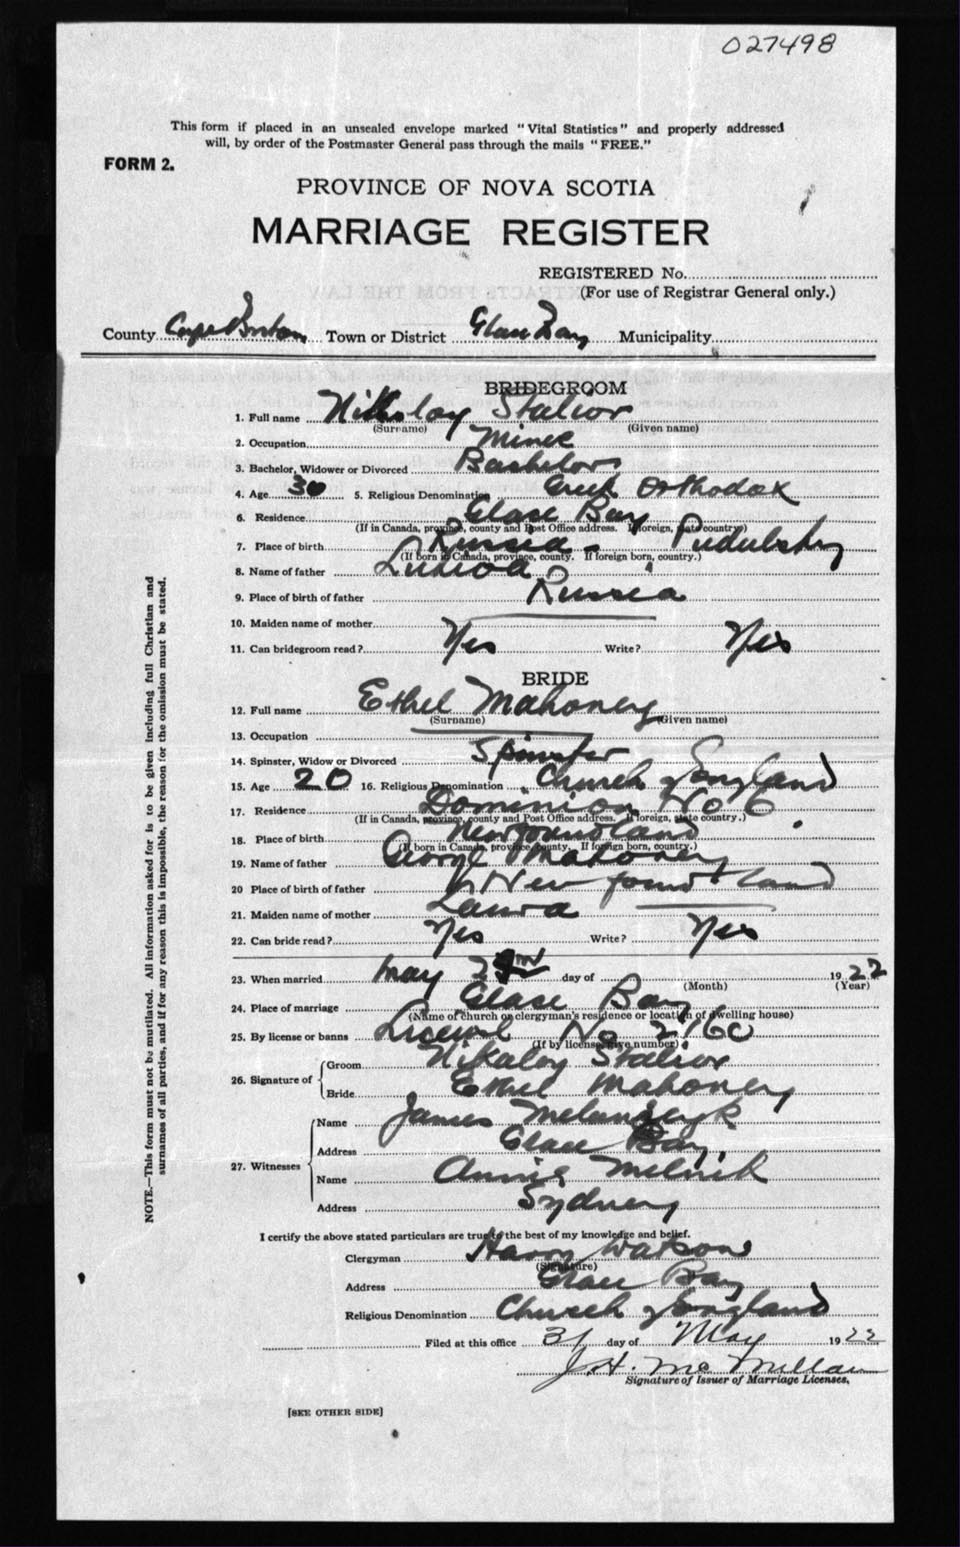 027498
This form if placed in an unsealed envelope marked "Vital Statistics" and properly addressed
will, by order of the Postmaster General pass through the mails "FREE."
FORM 2.
PROVINCE OF NOVA SCOTIA
MARRIAGE REGISTER
REGISTERED No.
(For use of Registrar General only.)
County Cape Breton Town or District Glace Bay Municipality
BRIDEGROOM
1. Full name Nikolay Stalior
(Surname) (Given name)
2. Occupation Miner
3. Bachelor, Widower or Divorced Bachelor
4. Age 30 5. Religious Denomination Greek Orthodox
6. Residence Glace Bay
(If in Canada, province, county and Post Office address. If foreign, state country.)
7. Place of birth Russia
(If born in Canada, province, county. If foreign born, country.)
8. Name of father
9. Place of birth of father Russia
10. Maiden name of mother
11. Can bridegroom read? Yes Write? Yes
BRIDE
12. Full name Ethel Mahoney
(Surname) (Given name)
13. Occupation
14. Spinster, Widow or Divorced Spinster
15. Age 20 16. Religious Denomination Church of England
17. Residence Dominion No 6
(If in Canada, province, county and Post Office address. If foreign, state country.)
18. Place of birth Newfoundland
(If born in Canada, province, county. If foreign born, country.)
19. Name of father George Mahoney
20 Place of birth of father Newfoundland
21. Maiden name of mother Laura
22. Can bride read? Yes Write? Yes
23. When married May day of 1922
(Month) (Year)
24. Place of marriage Glace Bay
(Name of church or clergyman's residence or location of dwelling house)
25. By license or banns License No 2160
(If by license, give number)
26. Signature of
Groom Nikolay Stalior
Bride Ethel Mahoney
27. Witnesses
Name James
Address Glace Bay
Name Annie Melnik
Address Sydney
I certify the above stated particulars are true to the best of my knowledge and belief.
Clergyman Harry Watson
(Signature)
Address Glace Bay
Religious Denomination Church of England
Filed at this office 31 day of May 1922
J. H. McMillan
Signature of Issuer of Marriage Licenses.
[SEE OTHER SIDE]
NOTE.—This form must not be mutilated. All information asked for is to be given including full Christian and
surnames of all parties, and if for any reason this is impossible, the reason for the omission must be stated.